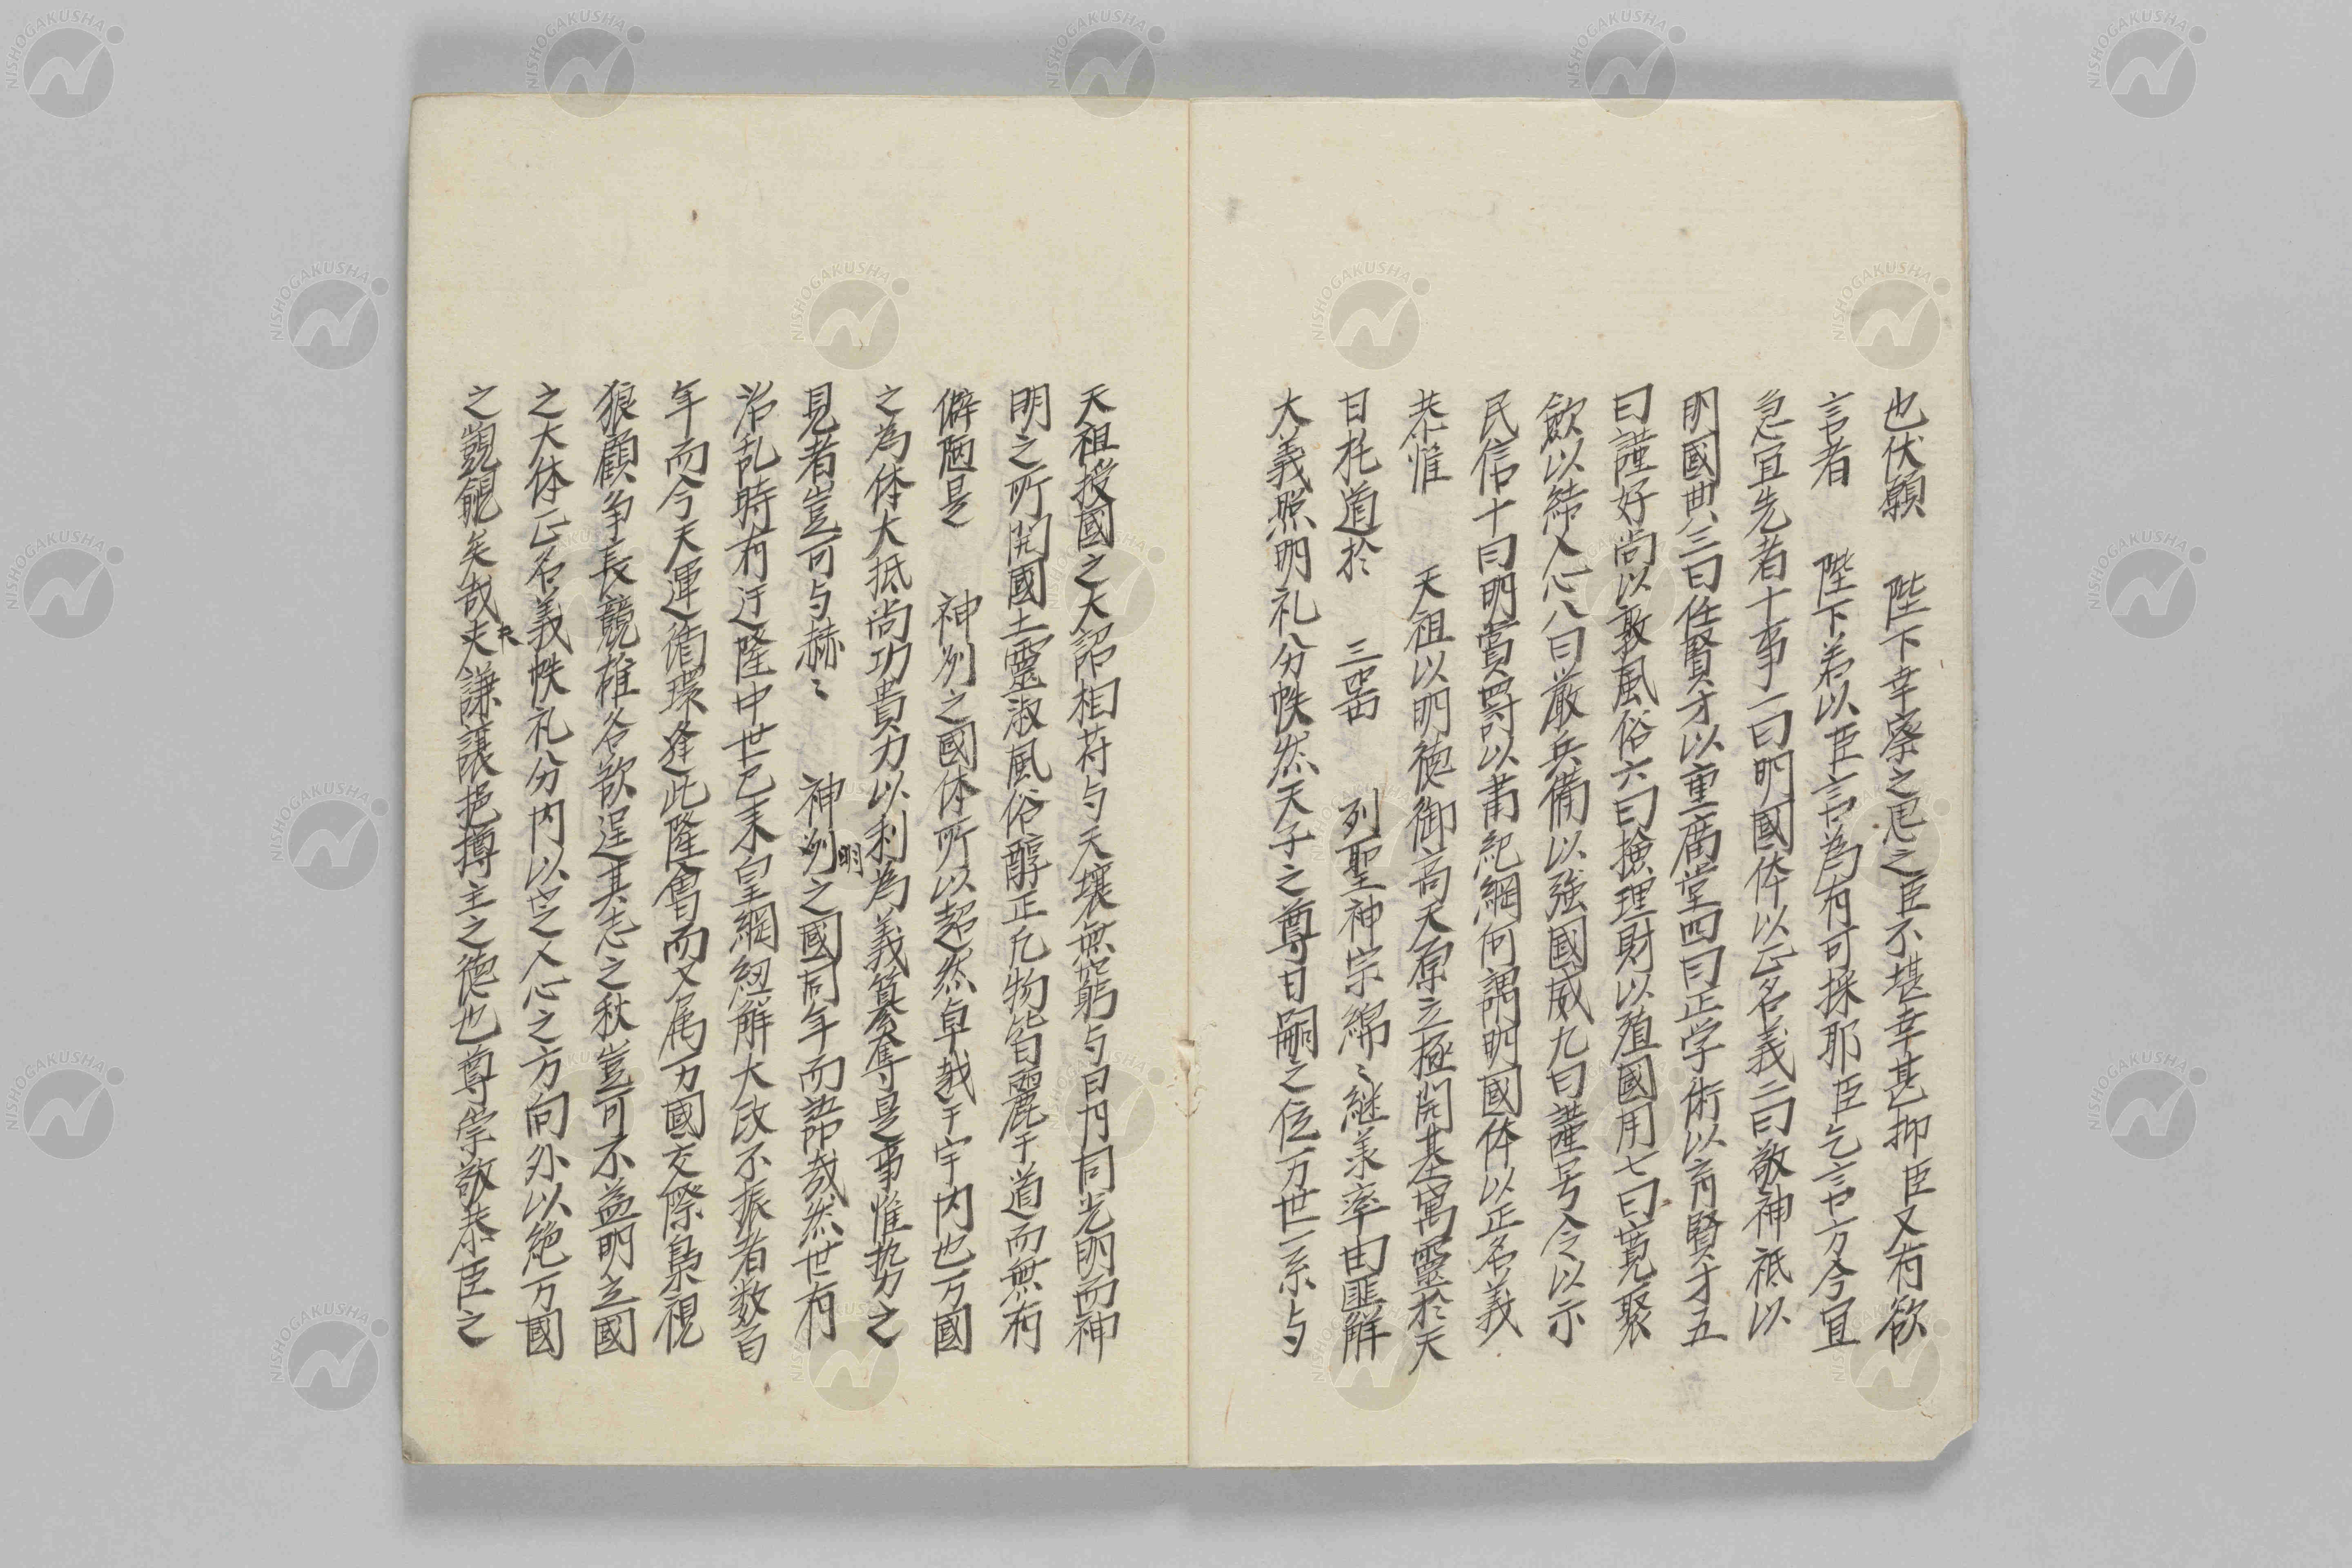 也伏願　陛下幸察之思之臣不堪幸甚抑臣又有欲
言者　陛下若以臣言為有可採耶臣乞言方今宜
急宜先者十事一曰明國体以正名義二曰敬神祗以
明國典三曰任賢才以重廟堂四曰正学術以育賢才五
曰謹好尚以敦風俗六曰撿理財以殖國用七曰寛聚
歛以結人心八曰厳兵備以強國威九曰謹号令以示
民信十曰明賞罸以肅紀綱何謂明國体以正名義
恭惟　天祖以明徳御高天原立極開基寓靈於天
日托道於　三器　列聖神宗綿〻継羕率由匪解
大義照明礼分帙然天子之尊日嗣之位万世一系与
天祖授國之大詔相苻与天壤無窮与日月同光明而神
明之所開國土靈淑風俗醇正凡物皆麗于道而無有
僻陋是　神州之國体所以超然卓越于宇内也万國
之為体大抵尚功貴力以利為義簒奪是事惟勢之
見者豈可与赫〻　神州明之國同年而語哉然世有
治乱時有汙隆中世已来皇綱紐解大政不振者数百
年而今天運循環逢此隆會而又属万國交際梟視
狼顧争長競雄各欲逞其志之秋豈可不益明立國
之大体正名義帙礼分内以定人心之方向外以絶万國
之覬覦矣哉夫謙讓挹撙主之徳也尊崇敬恭臣之
NISHOGAKUSHA